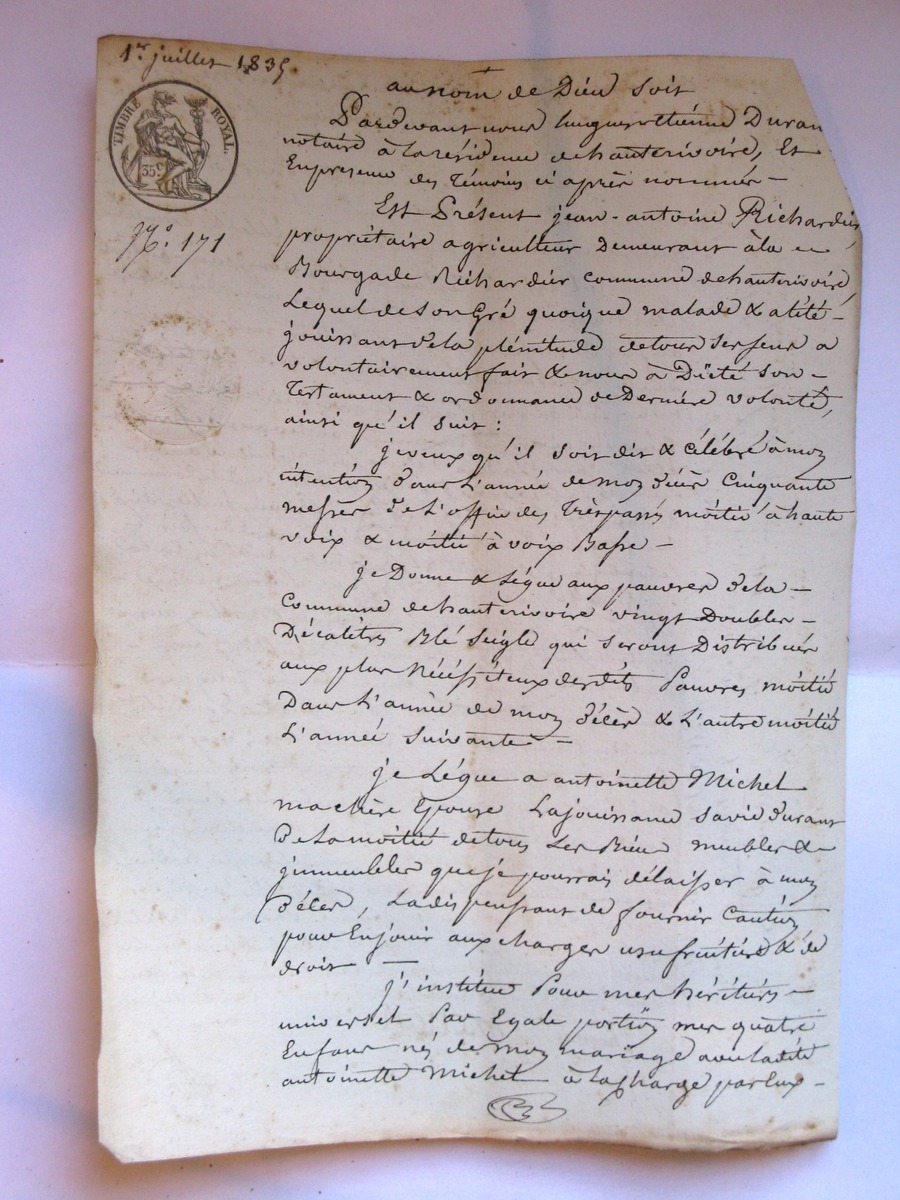 1er juillet 1835
TIMBRE ROYAL.
35c
No. 171
au nom de Dieu soit
Pardevant nous hugues etienne Duran
notaire à la residence de hauterivoire, Et
En presence des témoins ci après nommés —
Est Présent jean-antoine Richardier,
propriétaire agriculteur Demeurant à la
Bourgade Richardier commune de hauterivoire,
Lequel de son Gré quoique malade & alité —
jouissant de la plénitude de tous ses sens a
volontairement fait & nous à Dicté son —
Testament & ordonnance de Derniere volonté,
ainsi qu'il suit :
je veux qu'il soit dit & célébré à mon
intention dans L'année de mon décès Cinquante
messes de L'office des Trépassés moitié à haute
voix & moitié à voix Basse —
je Donne & Lègue aux pauvres de la —
Commune de hauterivoire vingt Doubles —
Décalitres Blé Seigle qui seront Distribués
aux plus Nécéssiteux desdits Pauvres moitié
Dans L'année de mon décès & L'autre moitié
L'année suivante —
je Légue a antoinette Michel
ma chère Epouse La jouissance sa vie durant
De La moitié de tous Les Biens meubles &
jmmeubles que je pourrais délaisser à mon
décès, La dispensant de fournir Caution
pour En jouir aux charges usufruitières & de
droit —
j'institue Pour mes héritiers —
universel Par Egale portion mes quatre
Enfans nés de mon mariage avec ladite
antoinette Michel à la charge par Eux —